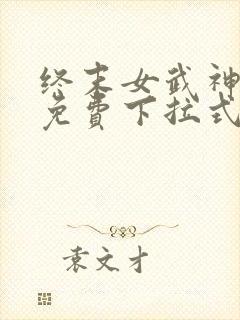 终末女武神
免费下拉式
袁文才